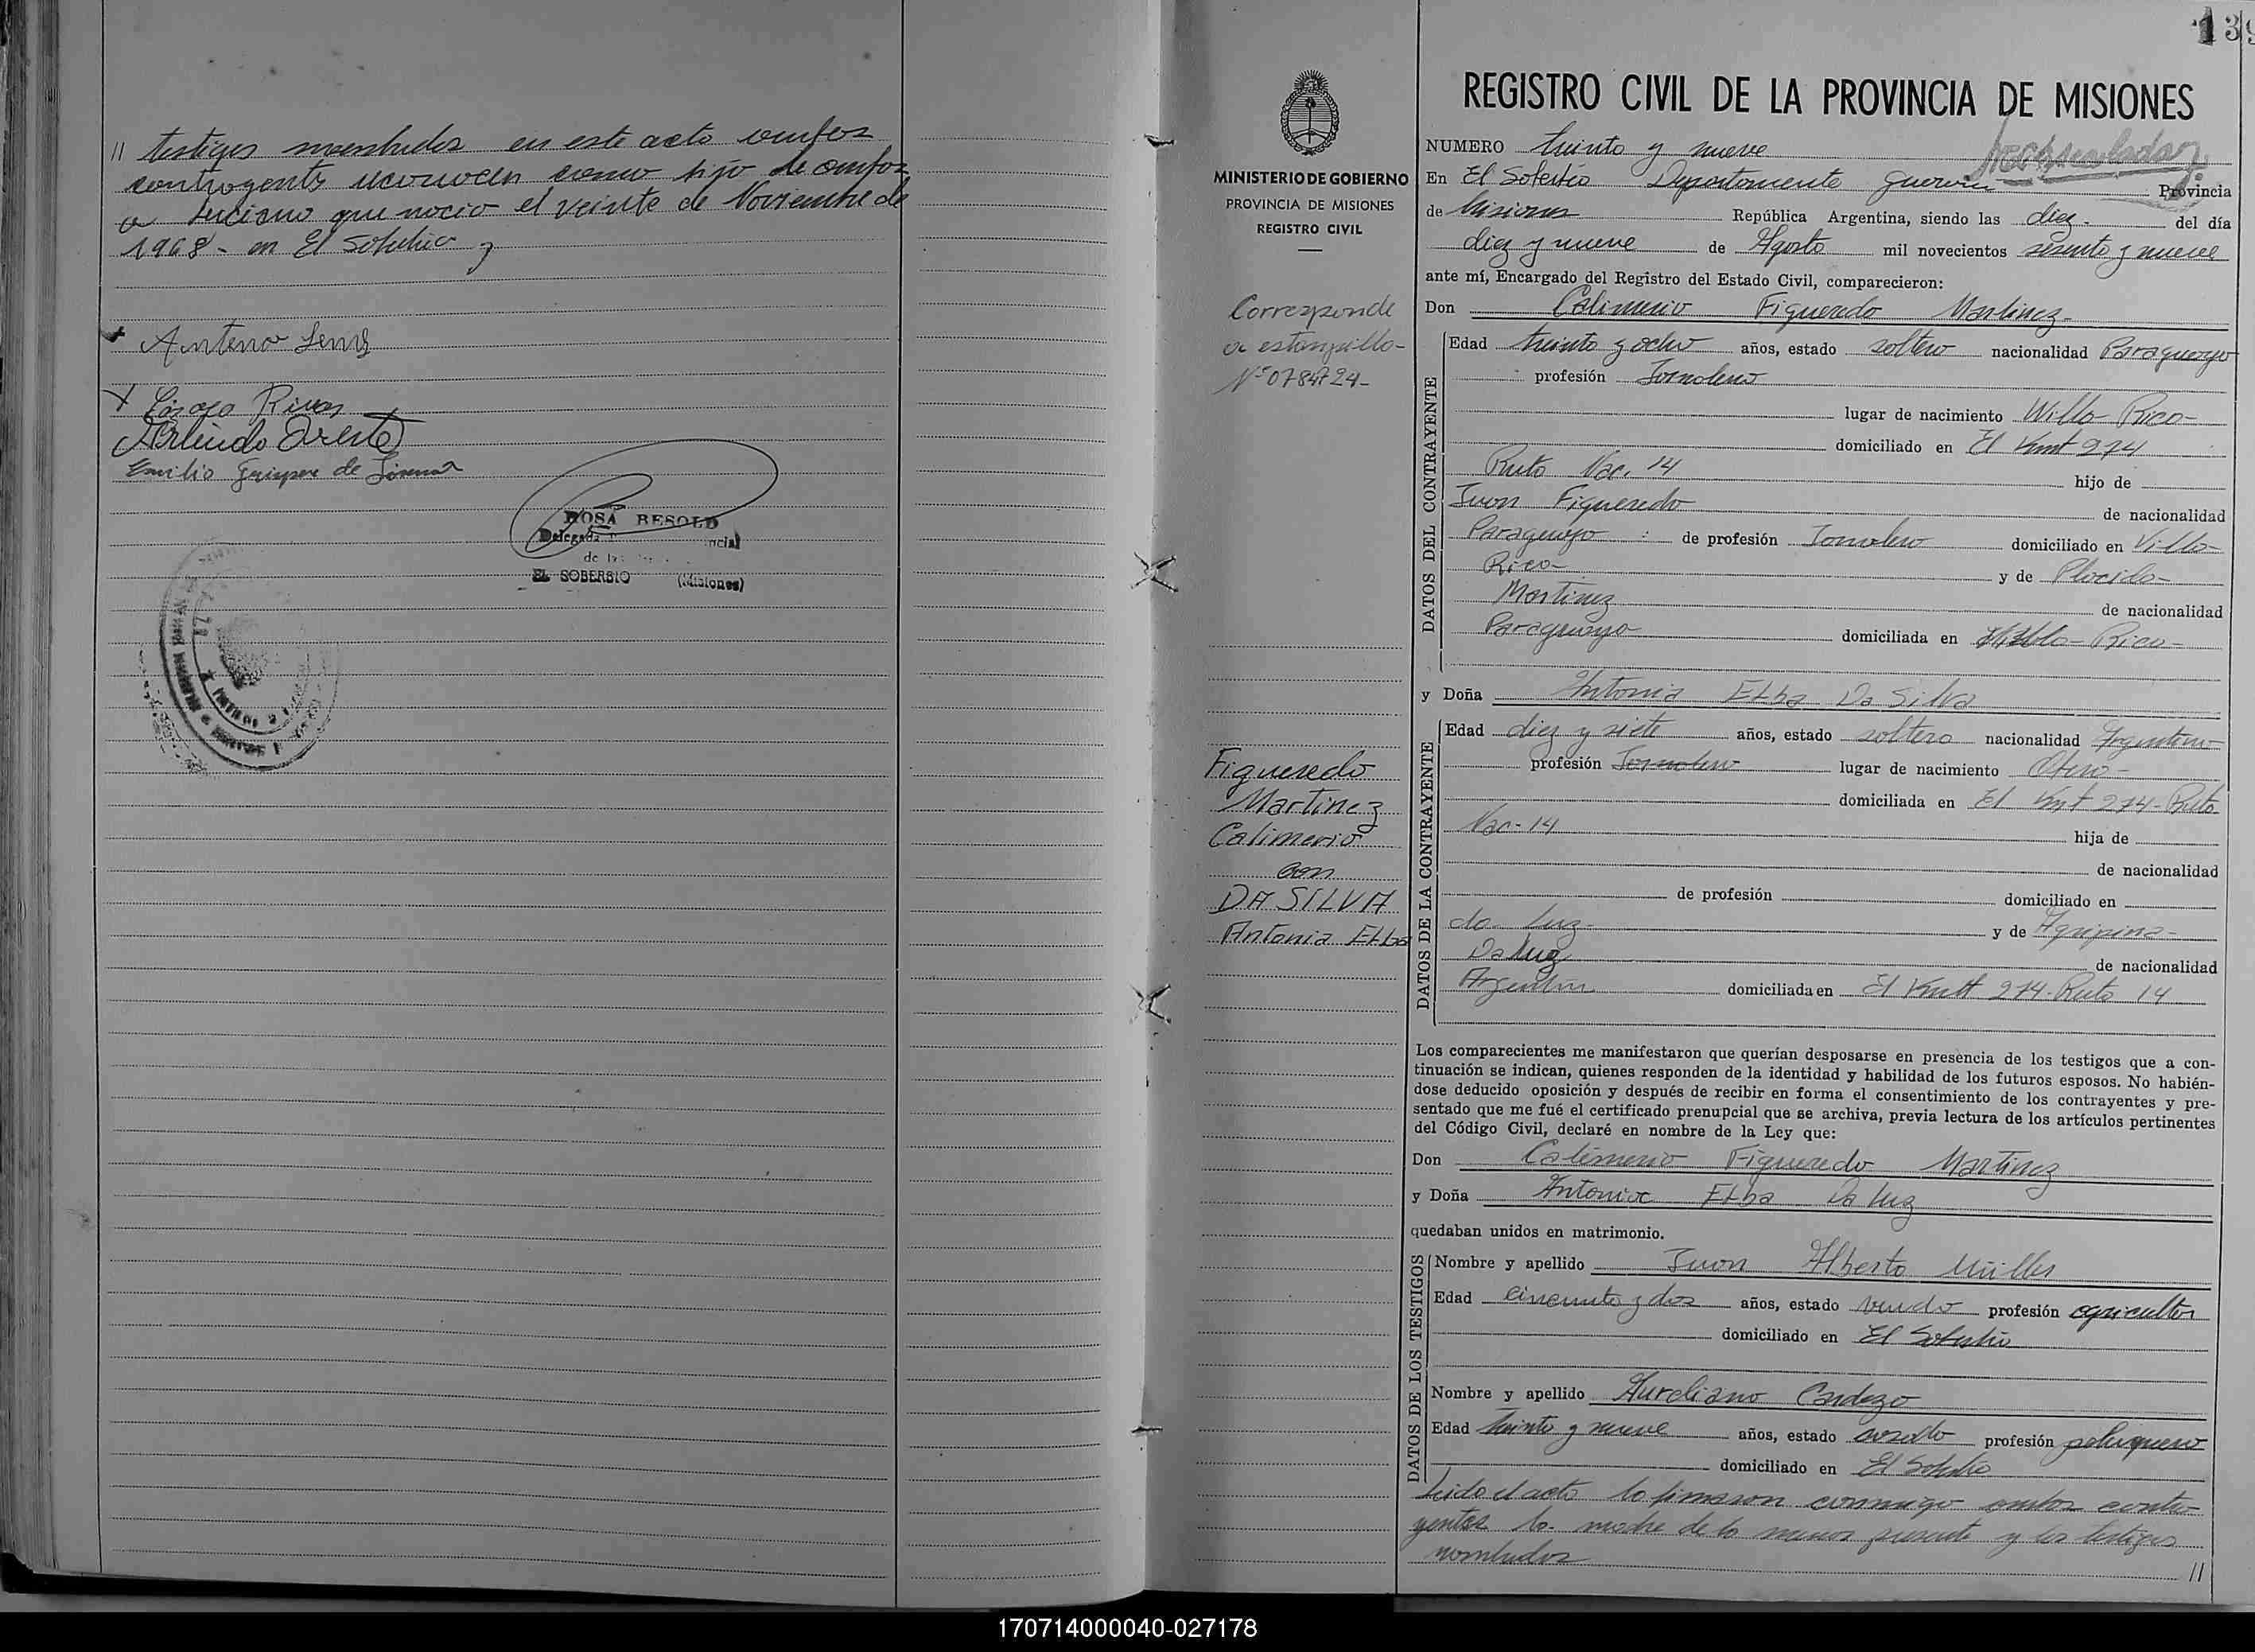 // testigos nombrados en este acto ambos
contrayentes reconocen como hijo de ambos
a Luciano que nacio el veinte de Noviembre de
1968 - en El Soberbio
Antenor
Rivas
Arlindo
Emilio de
ROSA BESOLD
Delegada
EL SOBERBIO (Misiones)
139
REGISTRO CIVIL DE LA PROVINCIA DE MISIONES
MINISTERIO DE GOBIERNO
PROVINCIA DE MISIONES
REGISTRO CIVIL
Corresponde
a estampilla-
Nº 0784724-
Figueredo
Martinez
Calimerio
con
DA SILVA
Antonia Elba
NUMERO treinta y nueve
En El Soberbio Departamento Guarani Provincia
de Misiones República Argentina, siendo las diez - del día
diez y nueve de Agosto mil novecientos sesenta y nueve
ante mí, Encargado del Registro del Estado Civil, comparecieron:
Don Calimerio Figueredo Martinez-
DATOS DEL CONTRAYENTE
Edad treinta y ocho años, estado soltero nacionalidad Paraguayo
profesión Jornalero
lugar de nacimiento Willa-Rica-
domiciliado en El Kmt 274
Ruta Nac. 14 hijo de
Juan Figueredo de nacionalidad
Paraguayo de profesión Jornalero domiciliado en Villa-
Rica- y de Placida-
Martinez de nacionalidad
Paraguaya domiciliada en Willa-Rica-
y Doña Antonia Elba Da Silva
DATOS DE LA CONTRAYENTE
Edad diez y siete años, estado soltera nacionalidad Argentina
profesión Jornalero lugar de nacimiento
domiciliada en El Kmt 274-Ruta
Nac-14 hija de
de nacionalidad
de profesión domiciliado en
da Luz- y de Agripina-
Da Luz de nacionalidad
Argentina domiciliada en El Kmt 274-Ruta 14
Los comparecientes me manifestaron que querían desposarse en presencia de los testigos que a con-
tinuación se indican, quienes responden de la identidad y habilidad de los futuros esposos. No habién-
dose deducido oposición y después de recibir en forma el consentimiento de los contrayentes y pre-
sentado que me fué el certificado prenupcial que se archiva, previa lectura de los artículos pertinentes
del Código Civil, declaré en nombre de la Ley que:
Don Calimerio Figueredo Martinez
y Doña Antonia Elba Da Luz
quedaban unidos en matrimonio.
DATOS DE LOS TESTIGOS
Nombre y apellido Juan Alberto Müller
Edad cincuenta y dos años, estado viudo profesión agricultor
domiciliado en El Soberbio
Nombre y apellido Aureliano Cardozo
Edad treinta y nueve años, estado casado profesión peluquero
domiciliado en El Soberbio
Leida el acta la firmaron conmigo ambos contra-
yentes la madre de la menor presente y los testigos
nombrados //
170714000040-027178